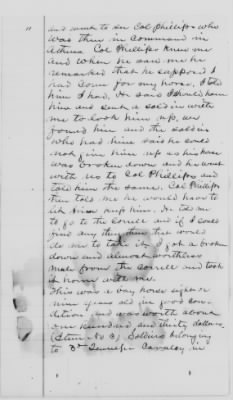 and went to see Col Phillips who
was then in command in
Athens Col Phillips knew me
and when he saw me he
remarked that he supposed I
had come for my horse, I told
him I had, He said I should have
him and sent a soldier with
me to look him up, we
found him and the soldier
who had him said he could
not give him up as his horse
was broken down and he went
with us to Col Phillips and
told him the same. Col Phillips
then told me he would have to
let him keep him. He told me
to go to the correll and if I could
find any thing there that would
do me to take it, I got a broken
down and almost worthless
mule from the correll and took
it home with me.
This was a bay horse eight or
nine years old in good con-
dition and was worth about
one hundred and thirty dollars.
(Item No 3) Soldiers belonging
to 3d Tennessee Cavalry in